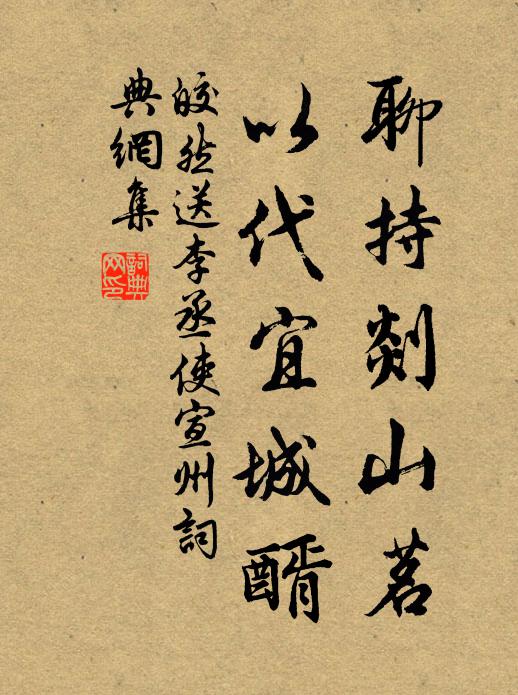 聊持剡山茗
以代宜城醑
皎然送李丞使宣州詞
典網集
詞典
网印